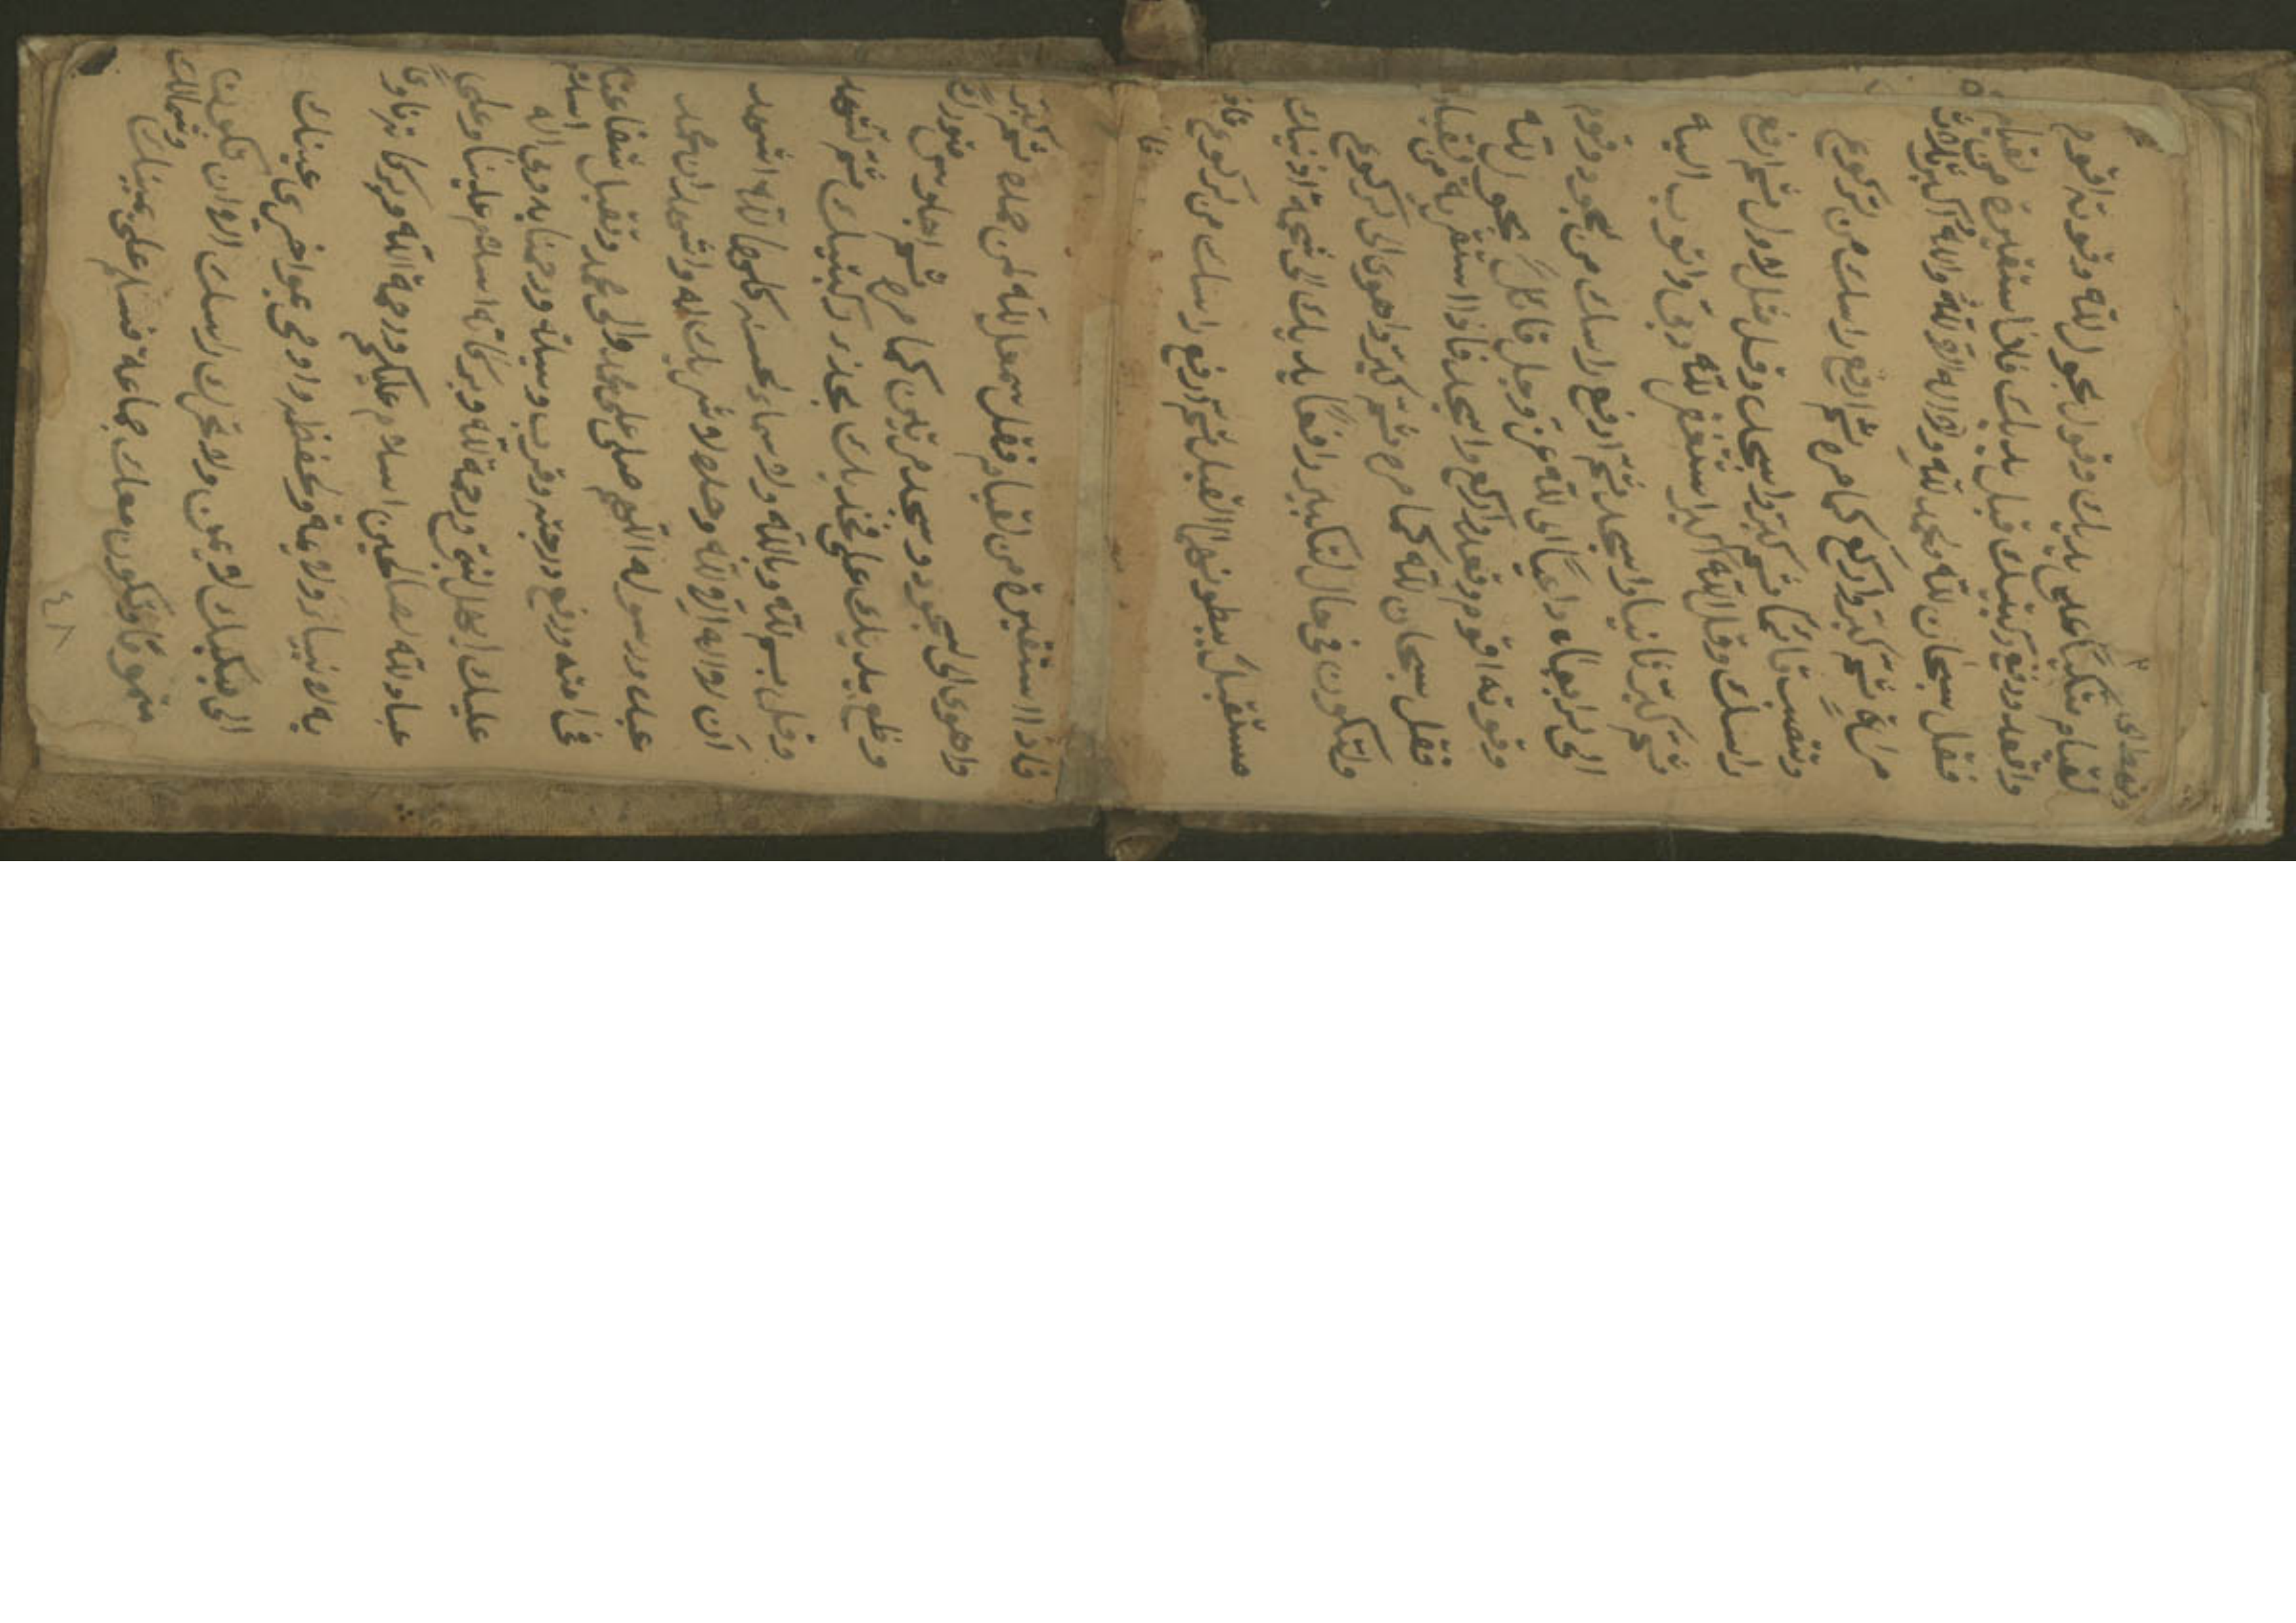 وتنهض الى
لقيام متكيا على يديك وقول بحول لله وقوته اقوم
واقعد ورفع ركبتيك قبل يديك فاذا استقلية من لقيام
فقل سبحان لله ولحمد لله ولا اله الا لله والله اكبر ثلاث
مراة ثم كبر واركع كما مر ثم ارفع راسك من لركوع
وتنصب قائما ثم كبر واسجد وقل مثل لاول ثم ارفع
راسك وقل الله اكبر استغفر لله ربي واتوب اليه
ثم كبر ثانيا واسجد ثم ارفع راسك من لسجود وقوم
الى لرابعاه داعيا الى لله عز وجل قائلا بحول لله
وقوته اقوم وقعد واركع واسجد فاذا استقرية من لقيام
فقل سبحان لله كما مر ثم كبر واهوى الى لركوع
ولتكون في حال لتكبير رافعا يديك الى شحمة اذنيك
مستقبلا ببطونهما القبله ثم ارفع راسك من لركوع
فاذا
فاذا استقرية من لقيام فقل سمع الله لمن حمده ثم كبر
واهوى الى لسجود وسجد مرتين كما مر ثم اجلوس متورك
وظع يديك على فخذيك بحذر ركبتيك ثم تشهد
وقل بسم لله وبالله ولاسماء لحسنى كلها لله اشهد
ان لا اله الا لله وحده لا شريك له واشهد ان محمد
عبده ورسوله اللهم صلى على محمد وال محمد وتقبل شفاعته
في امته ورفع درجته وقرب وسيلته ورحمنا به اسلام
عليك ايها النبي ورحمة لله وبركاته اسلام علينا وعلى
عباد لله لصالحين اسلام عليكم ورحمة الله وبركاته ناوي
به الانبياء ولايمة ولحفظه واومي بمواخر عينك
الى منكبك لايمن ولا تحرك راسك الا ان تكون
وتكون معك جماعة فسلم على يمينك وشمالك
٤٨